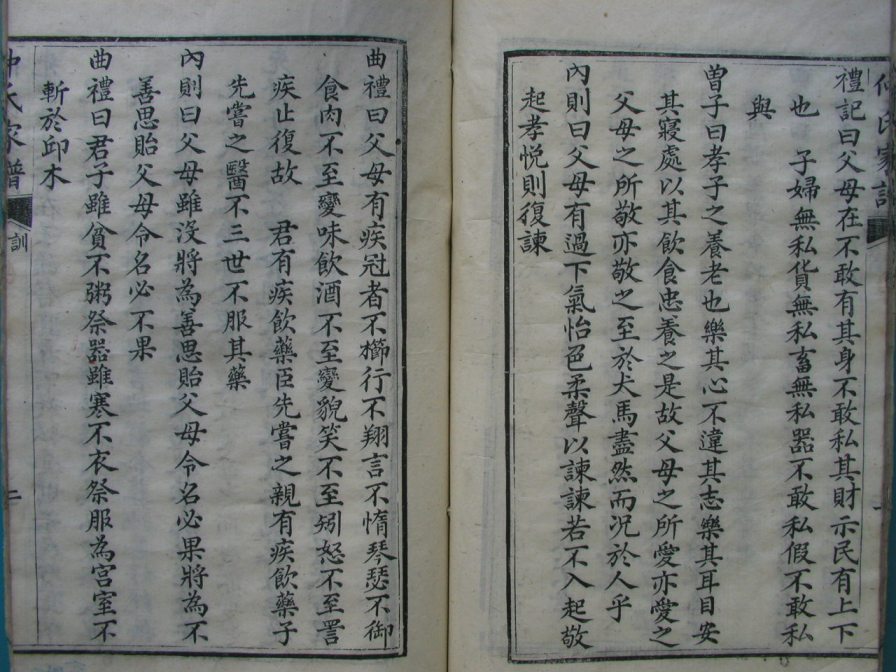 禮記曰父母在不敢有其身不敢私其財示民有上下
也　子婦無私貨無私畜無私器不敢私假不敢私
與
曽子曰孝子之養老也樂其心不違其志樂其耳目安
其寢處以其飲食忠養之是故父母之所愛亦愛之
父母之所敬亦敬之至於犬馬盡然而况於人乎
內則曰父母有過下氣怡色柔聲以諫諫若不入起敬
起孝悅則復諫
曲禮曰父母有疾冠者不櫛行不翔言不惰琴瑟不御
食肉不至變味飲酒不至變貌笑不至矧怒不至詈
疾止復故　君有疾飲藥臣先嘗之親有疾飲藥子
先嘗之醫不三世不服其藥
內則曰父母雖沒將為善思貽父母令名必果將為不
善思貽父母令名必不果
曲禮曰君子雖貧不粥祭器雖寒不衣祭服為宮室不
斬於邱木
氏家譜
訓
二